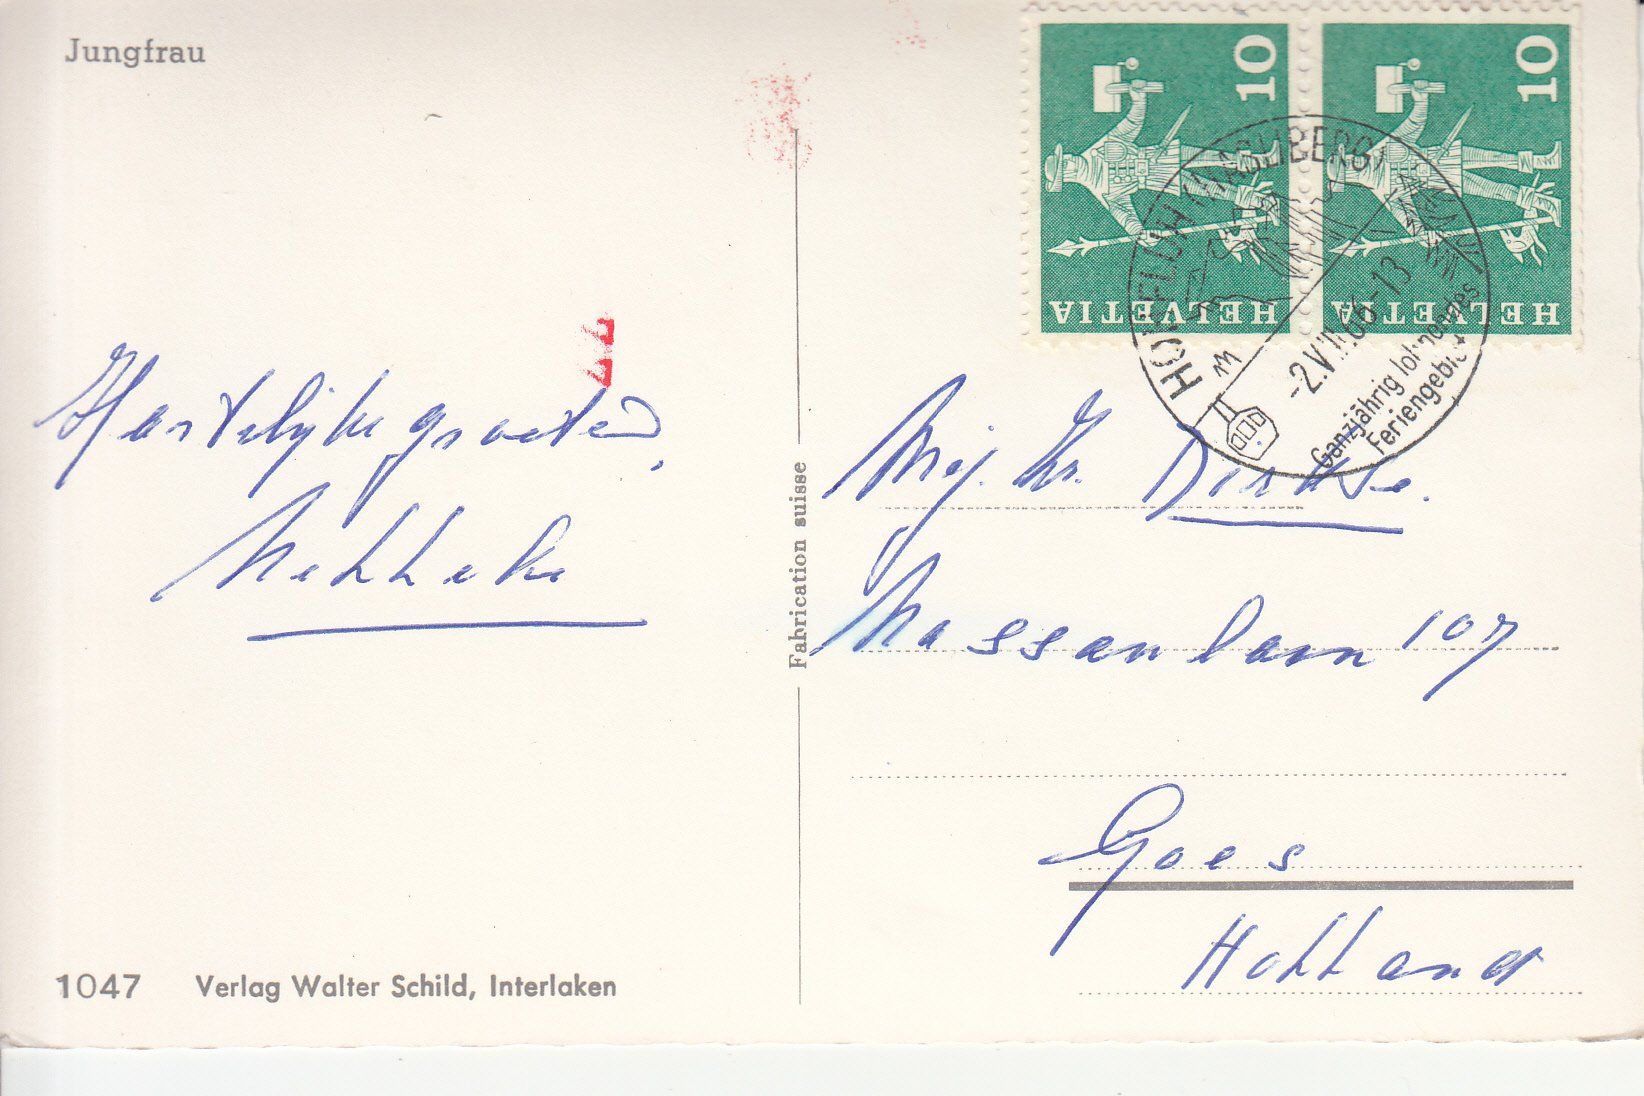 Jungfrau
10
10
HELVETIA
HELVETIA
HOHFLUH (HASLIBERG)
-2.VIII.66-13
Ganzjährig lohnendes
Feriengebiet
Hartelijke groeten,
Fabrication suisse
Mej. Dirkse.
Nassaulaan 107
Goes
Holland
1047 Verlag Walter Schild, Interlaken